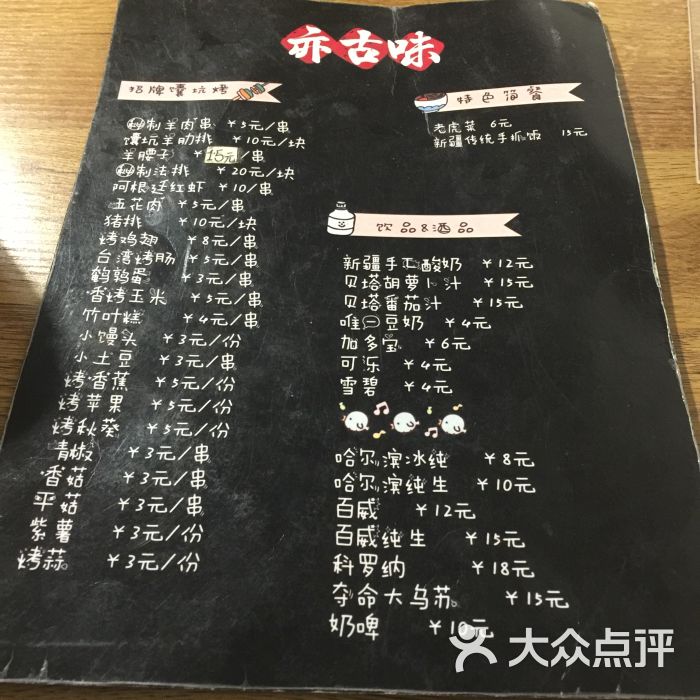 亦古味
招牌馕坑烤
秘制羊肉串 ¥5元/串
馕坑羊肋排 ¥10元/块
羊腰子 ¥15元/串
秘制法排 ¥20元/块
阿根廷红虾 ¥10/串
五花肉 ¥5元/串
猪排 ¥10元/块
烤鸡翅 ¥8元/串
台湾烤肠 ¥5元/串
鹌鹑蛋 ¥3元/串
香烤玉米 ¥5元/串
竹叶糕 ¥4元/串
小馒头 ¥3元/份
小土豆 ¥3元/串
烤香蕉 ¥5元/份
烤苹果 ¥5元/份
烤秋葵 ¥5元/份
青椒 ¥3元/串
香菇 ¥3元/串
平菇 ¥3元/串
紫薯 ¥3元/份
烤蒜 ¥3元/份
特色简餐
老虎菜 6元
新疆传统手抓饭 15元
饮品&酒品
新疆手工酸奶 ¥12元
贝塔胡萝卜汁 ¥15元
贝塔番茄汁 ¥15元
唯一豆奶 ¥4元
加多宝 ¥6元
可乐 ¥4元
雪碧 ¥4元
哈尔滨冰纯 ¥8元
哈尔滨纯生 ¥10元
百威 ¥12元
百威纯生 ¥15元
科罗纳 ¥18元
夺命大乌苏 ¥15元
奶啤 ¥10元
大众点评